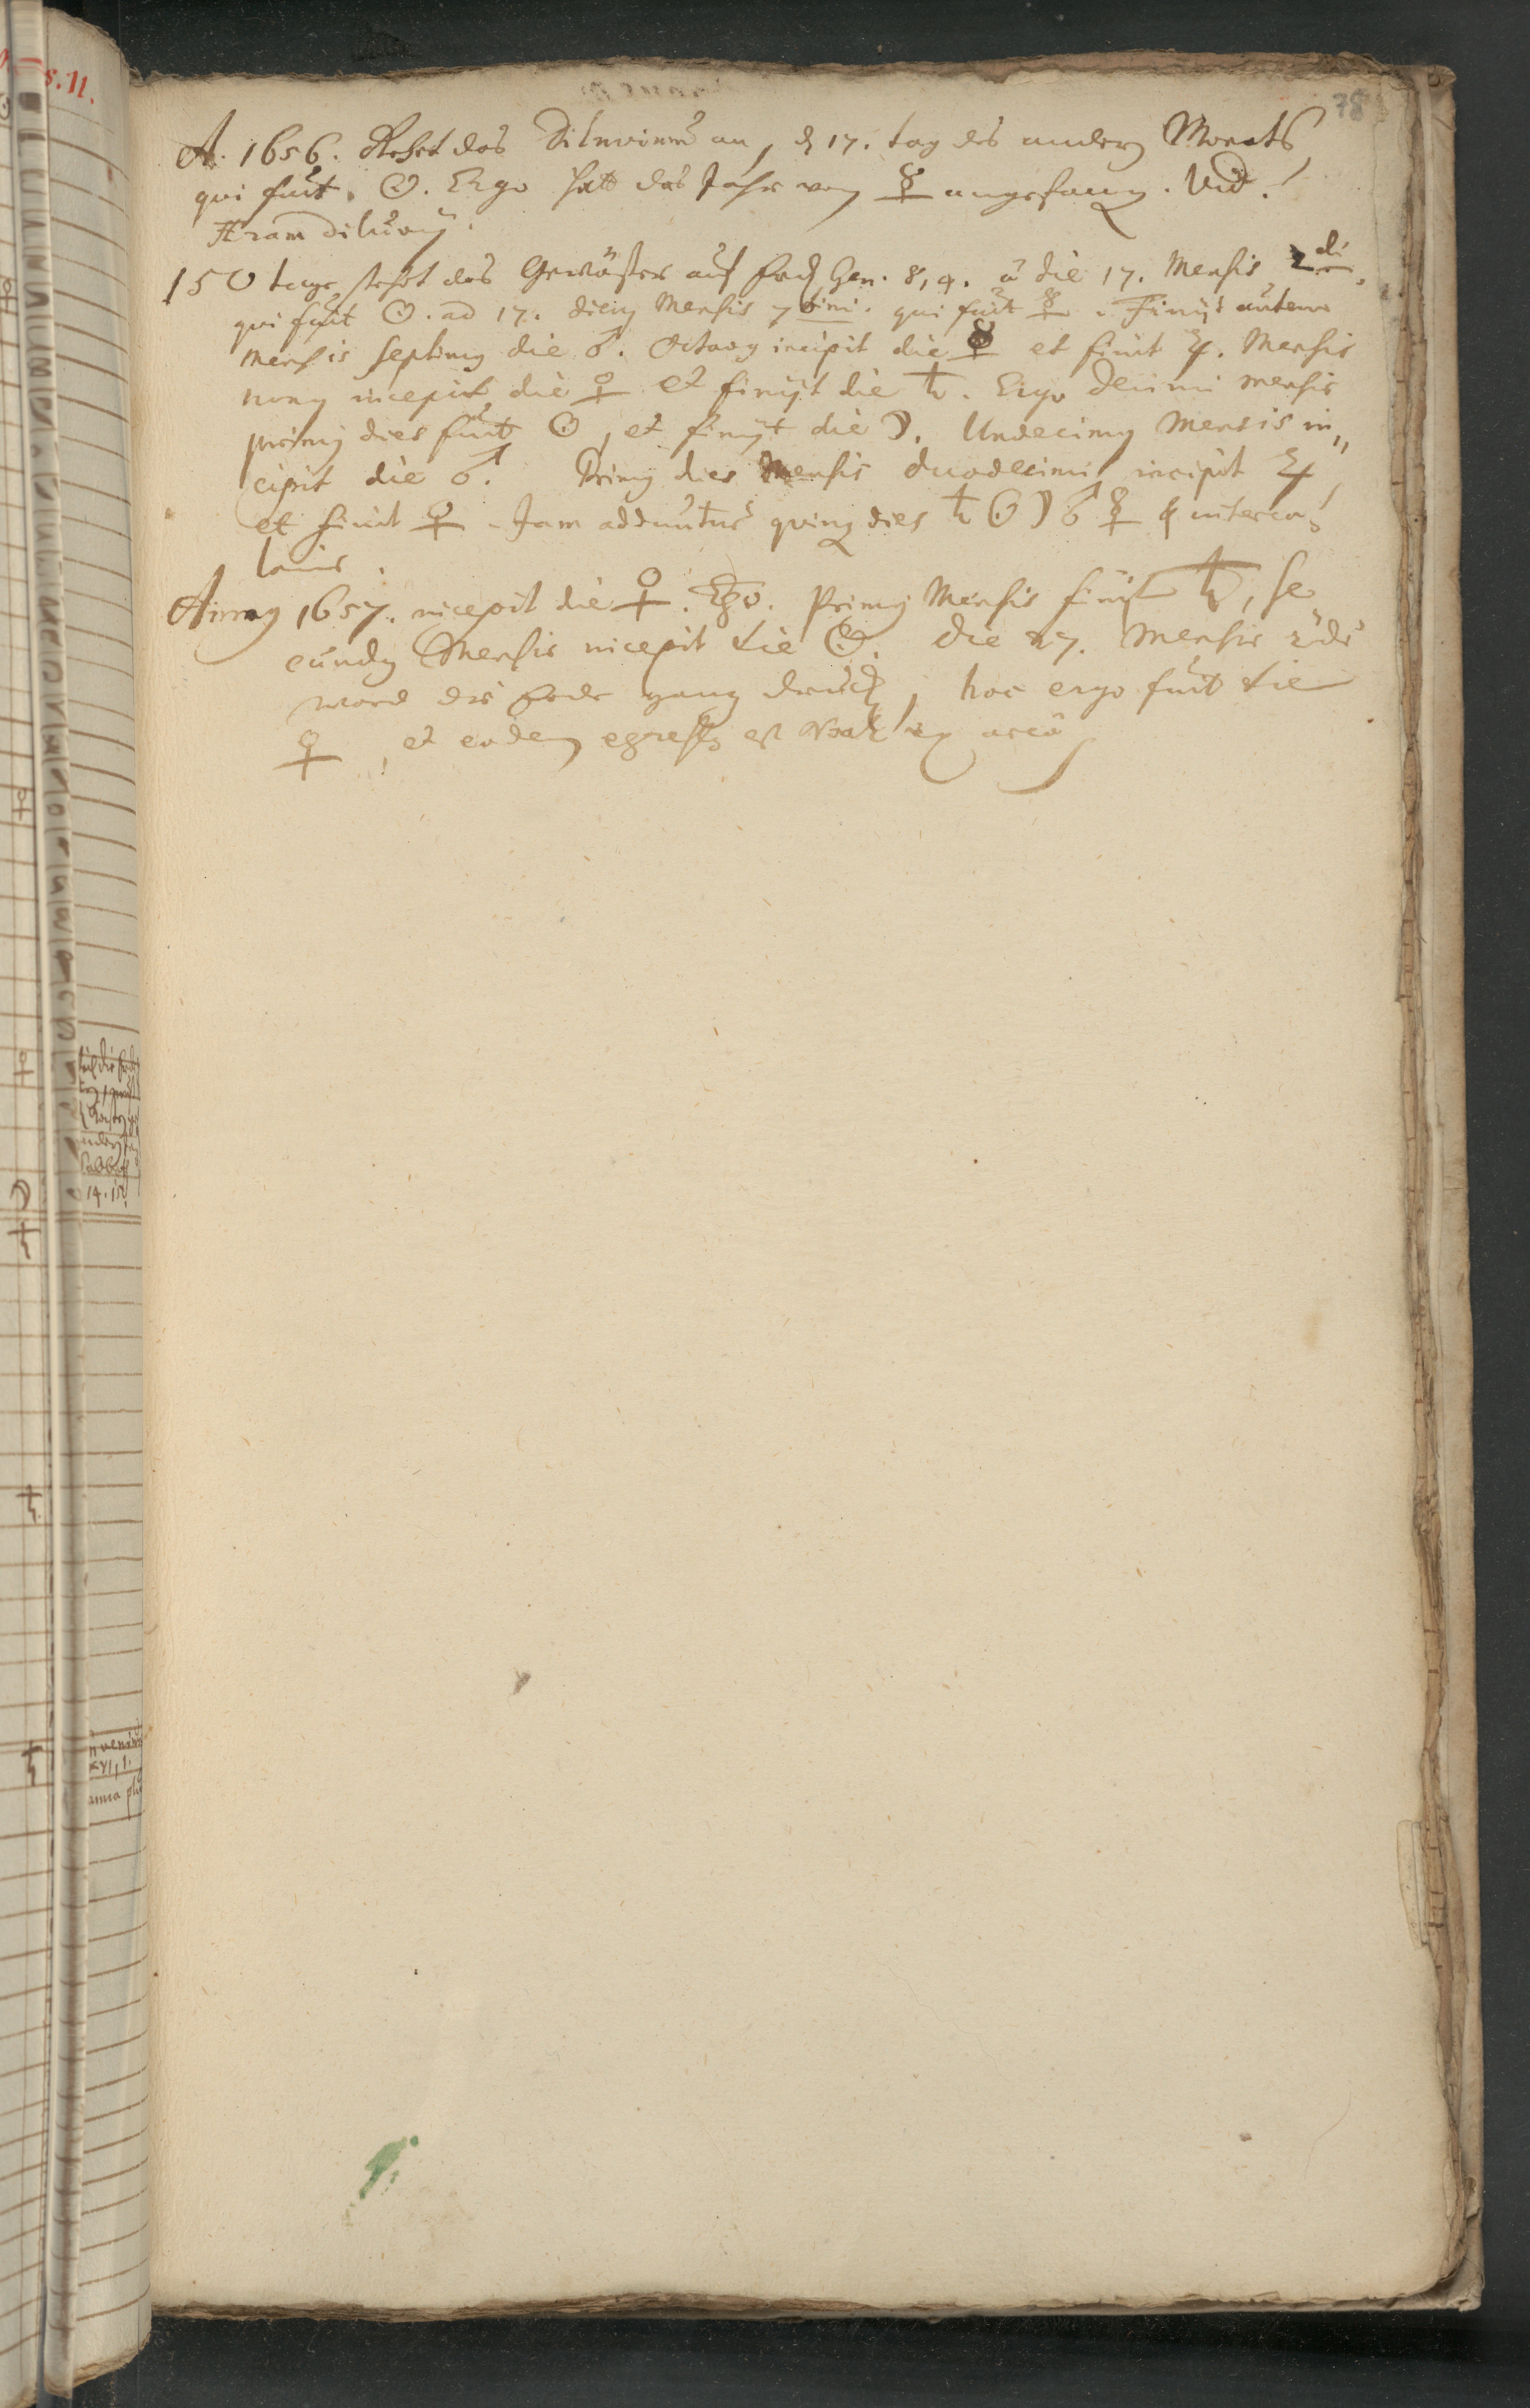 78
A. 1656. Gehet das Diluvium an, den 17. tag des andern Monats
qui fuit ☉. Ergo hatt das Jahr von ☿ angefangen. Vid.
Æram diluvij.
150 tage stehet das Gewässer auf Erden Gen. 8, 4. à die 17. Mensis 2di.
qui fuit ☉. ad 17. diem Mensis 7timi. qui fuit ☿. Finijt autem
mensis septimus die ♂. Octavus incipit die ☿ et finit ♃. Mensis
nonus incepit die ♀ et finijt die ♄. Ergo decimi mensis
primus dies fuit ☉, et finijt die ☽. Undecimus Mensis in„
cipit die ♂. Primus dies Mensis duodecimi incipit ♃
et finit ♀. Jam addantur quinque dies ♄ ☉ ☽ ♂ ☿ interca„
lares.
Annus 1657. incepit die ♀. Ergo. Primus Mensis finit ♄, Se„
cundus Mensis incepit die ☉. Die 27. Mensis 2di
ward die Erde gantz drucken, hoc ergo fuit die
♀, et eodem egressus est Noah ex arca
s. 11.
14. 15.
XVI, 1.